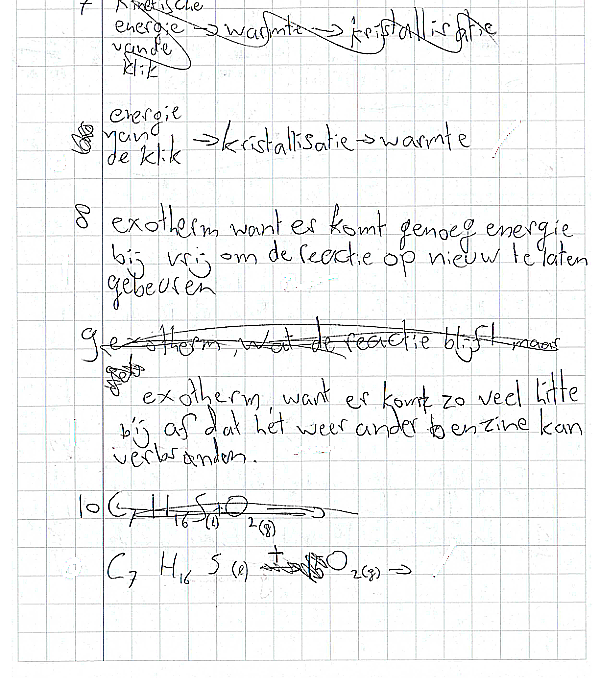 7 kinetische
energie → warmte → kristallisatie
van de
klik
energie
van
de klik → kristallisatie → warmte
8 exotherm want er komt genoeg energie
bij vrij om de reactie op nieuw te laten
gebeuren
9 exotherm, want de reactie blijft maar
exotherm, want er komt zo veel hitte
bij af dat het weer ander benzine kan
verbranden.
10 C7 H16 S(l) + O2(g) →
C7 H16 S (l) + O2(g) →